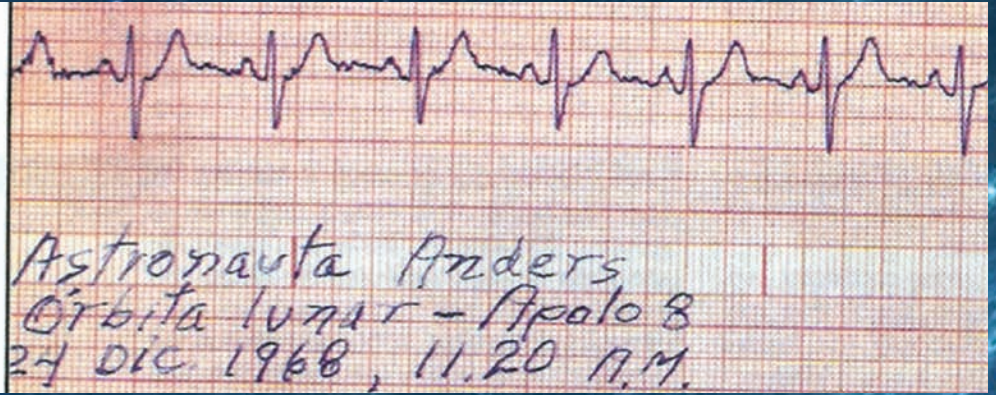 Astronauta Anders
Órbita lunar - Apolo 8
24 DIC. 1968, 11.20 A.M.